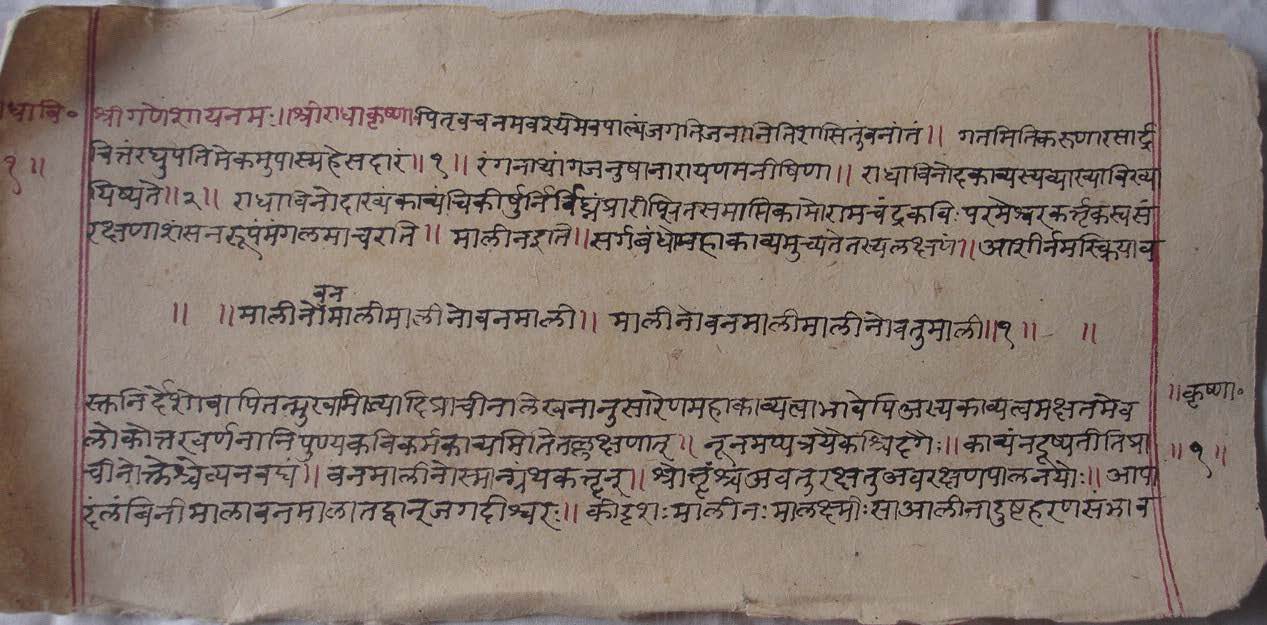 धावि॰
१॥
श्रीगणेशायनमः॥श्रीराधाकृष्णापितृवचनमवश्यंमेवपाल्यंजगतिजनानितिशासितुंवनांतं॥ गतमितिकरुणारसार्द्र
चित्तंरघुपतिमेकमुपास्महेसदारं॥१॥ रंगनाथांगजनुषानारायणमनीषिणा॥ राधाविनोदकाव्यस्यव्याख्याविरच
यिष्यते॥२॥ राधाविनोदाख्यंकाव्यंचिकीर्षुर्निर्विघ्नंप्रारीप्सितसमाप्तिकामोरामचंद्रकविःपरमेश्वरकर्त्तृकस्वसं
रक्षणाशंसनरूपंमंगलमाचरति॥ मालीनइति॥सर्गबंधोमहाकाव्यमुच्यतेतस्यलक्षणं॥आशीर्नमस्क्रियाव
वन
॥ ॥मालीनोमालीमालीनोवनमाली॥ मालीनोवनमालीमालीनोवतुमाली॥१॥ ॥
स्तुनिर्देशोवापितन्मुखमित्यादिप्राचीनालेखनानुसारेणमहाकाव्यत्वाभावेपिअस्यकाव्यत्वमक्षतमेव
लोकोत्तरवर्णनानिपुण्यकविकर्मकाव्यमितितल्लक्षणात्॥ नूनमप्यत्रयैकैश्चिदंगैः॥काव्यंनदुष्यतीतिप्रा
चीनोक्तेश्चेत्यनवद्यं॥वनमालीनोस्मान्ग्रंथकर्त्तॄन्॥श्रोतॄंश्चअवतुरक्षतुअवरक्षणपालनयोः॥आपा
दलंबिनीमालावनमालातद्वान्जगदीश्वरः॥ कीदृशःमालीनःमालक्ष्मीःसाआलीनादुष्टहरणसंभाव
॥कृष्णा॰
॥१॥